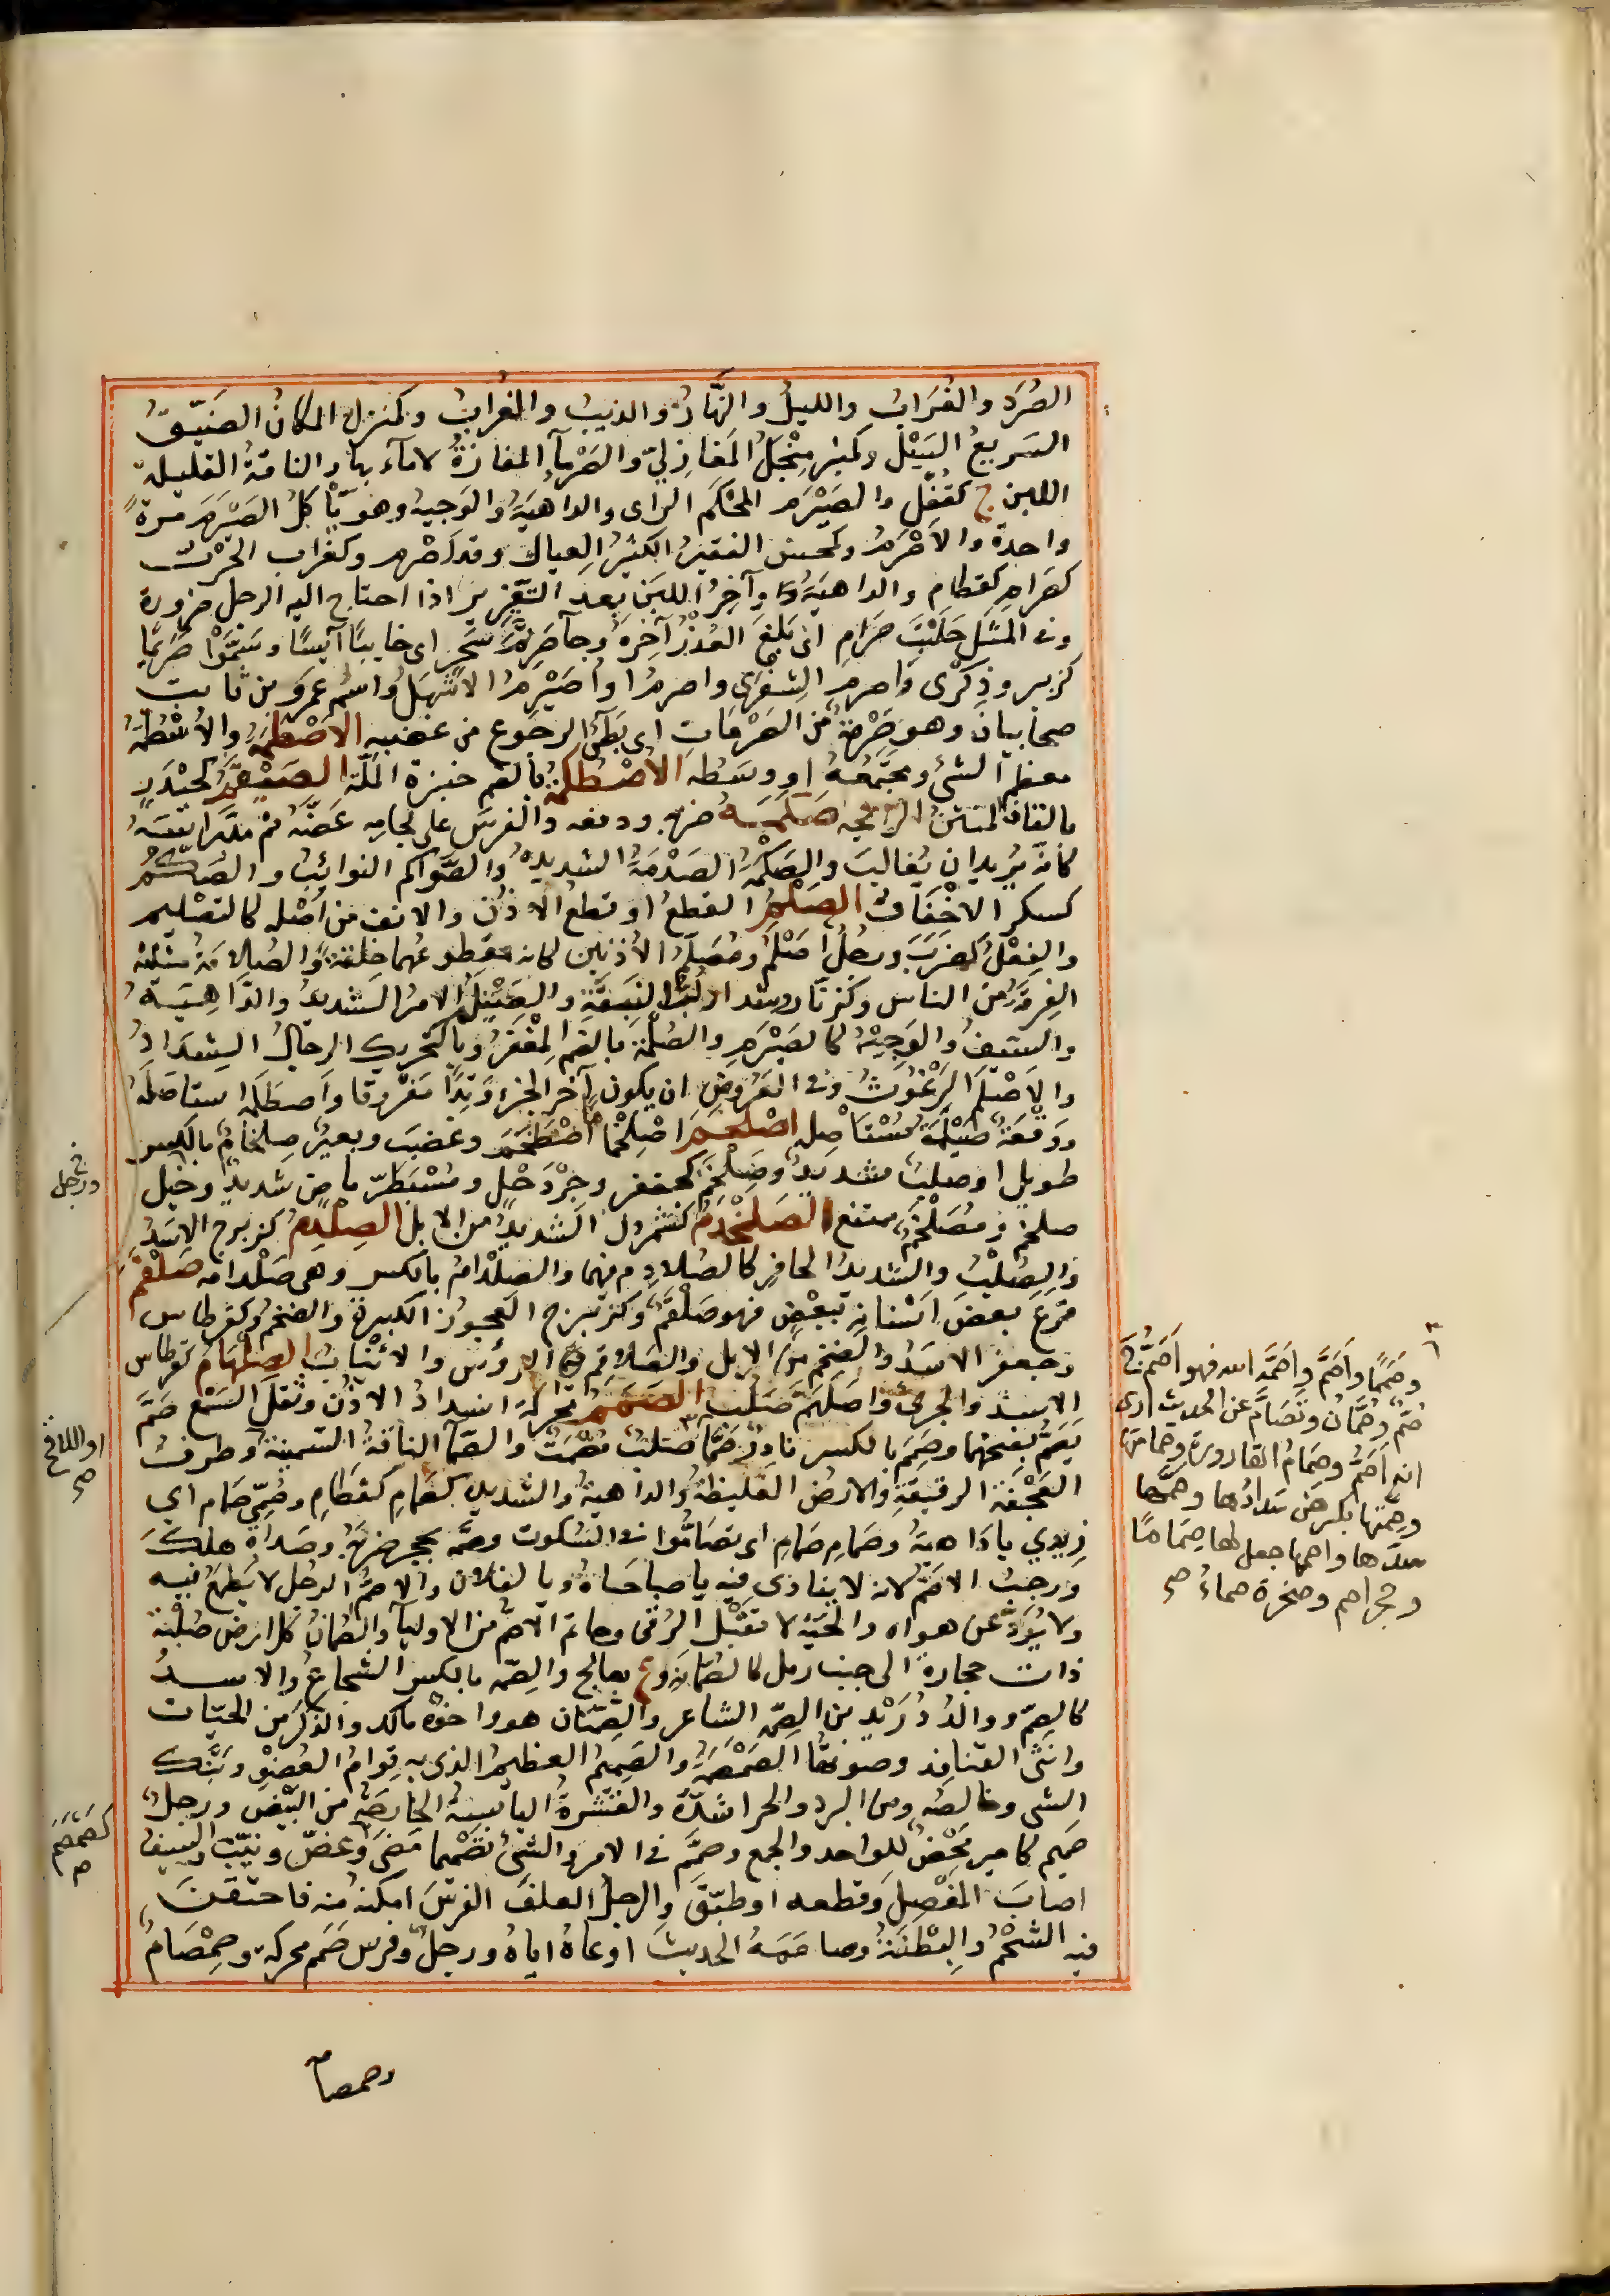 الصُرَدِ والغُرَابِ والليلُ والنّهَارُ والذيبُ والغرابُ وكمنزل المكانُ الضَيّقُ
السَريعُ السَيْلِ وكمنبر مِنْجَلُ المَغَازِليّ والصَرْمآءُ المفازةُ لا مآءَ بها والناقةُ القليلة
اللبن ج كقُفْلٍ والصَيْرَمِ المحْكَم الرأى والداهيَةُ والوَجبةُ وهو يأكلُ الصَيْرَمَ مرةً
واحدة والأصْرَمُ وكمحسن الفقيرُ الكثيرُ العيال وقد أصْرم وكغراب الحَرْبُ
كصَرامِ كقطام والداهيَةُ وآخِرُ اللبَن بعد التغزير اذا احتاج اليه الرجل ضرورة
وفى المثل حَلَبَتْ صَرَامِ اى بَلَغَ العُذْرُ آخِرَهُ وجآء صَرِيمَ سَحَرٍ اى خايبًا آيسًا وسَمَّوْا صُرَيما
كزبير وذِكْرَى واصرم الشقَرِى واصرمُ او أصَيْرِمُ الاشهَلىُّ واسْمُه عمرَو بن ثابت
صحابيان وهو صَرْمَةٌ من الصَرَمَاتِ اى بَطئُ الرجوع من غضبه الاُصْطُمَّةُ والأُسْطُمَّةُ
معظم الشئ ومجتَمَعُه او وسَطه الأُصْطُكْمَةُ بالضم خبزة المَلّة الصَيْقَمُ كحَيْدَرٍ
بالقاف المنتنُ الرائحة صَكَمَهُ ضربه ودفعه والفرسُ على لجامه عَضّهُ ثم مَدَّ رأسَه
كانّه يُريد ان يُغالبَ والصَكْمَةُ الصَدْمَةُ الشديدةُ والصَّوَاكم النوائبُ والصُكَّمُ
كسكر الاخْفَافُ الصَلْمُ القطعُ او قطع الأذُن والانف من أصْله كالتصْليم
والفِعْلُ كضَرَبَ ورجُلٌ أصْلَمُ ومُصَلَّمُ الأذنين كانه مقطوعُهما خلقةً والصُلامةُ مثلثة
الفِرقةُ من الناس وكزنّار وشداد لُبُّ النَبَقةِ والصَيْلَمُ الامرُ الشديدُ والدَّاهيَةُ
والسَيفُ والوَجْبَةُ كالصَيْرَمِ والصُلْمَةُ بالضم المِغْفَرُ وبالتحريك الرجالُ الشِدَادُ
والاصْلَمُ البُرْغُوثُ وفى العَرُوض ان يكون آخر الجزء وَتِدًا مَفْروقا واصطلَمَه استأصَلَهُ
ووَقْعَةٌ صَيْلَمَةٌ مُسْتَأصِلة اصْلَخَمَّ اصْلِخْمامًا اصْطَخَمَ وغضِبَ وبعيرٌ صِلْخامٌ بالكسر
طويل او صلبٌ شديدٌ وصَلْخَمٌ كجعفر وجِرْدَحْل ومُسْبَطِرّ ماضٍ شديدٌ وجَبَل
صلخمٌ ومُصْلَخِمٌّ ممتنع الصَلَخْدَمُ كشمردل الشديدُ من الابل الصِلْدِمُ كزبرج الاسَدُ
والصُلْبُ والشديدُ الحافرِ كالصُلادِم فيهما والصِلْدامُ بالكسر وهى صِلْدامة صَلْقَمَ
قرعَ بعضَ اسْنانه ببَعْضٍ فهو صَلْقَمٌ وكزبرج العجوزُ الكبيرةُ والضخمُ وكقرطاس
وجعفر الاسَدُ والضخم من الابل والصَلاقِمُ الرؤس والانْيَابُ الصِلْهَامُ كقرطاس
الاسدُ والجرئُ واصلَهَمَّ صَلُبَ الصَمَمُ محركةً انسِدادُ الأذُن وثقلُ السَمْع صَمَّ
يَصَمُّ بفتحهما وصَمِمَ بالكسر نادرٌ صَمًّا صلبٌ مُصْمَتٌ والصَمّآءُ الناقةُ السّمينةُ وطرفُ
العَفِجَةِ الرقيقةِ والارضُ الغليظةُ والداهيةُ الشديدةُ كصَمَامِ كقطَامِ وصُمّى صَمَامِ اى
زِيدى يادَاهيَةُ وصَمَامِ صَمَامِ اى تصَامُّوا فى السُكوت وصَمَّه بحجر ضرَبَهُ وصَداهُ هلكَ
ورجبُ الاصَمُّ لانه لا ينادَى فيه ياصباحَاهُ ويالفلان والاصَمُّ الرجل لا يُطمَعُ فيه
ولا يُرَدُّ عن هواه والحَيّةُ لا تقبَلُ الرُقَى وحاتم الاصَمُّ من الاوليآء والصُمّانُ كل ارض صُلْبَة
ذات حجارة الى جنب رمل كالصَمّانةِ وع بعالج والصِمّه بالكسر الشجاعُ والاسدُ
كالصِمّ ووالدُ دُرَيْدِ بن الصِمّة الشاعرِ والصِّمّتانِ هو واخوه مالك والذكَرُ من الحيّات
وانثى القنافذ وصوتُها الصَمْصَمَةُ والصَميمُ العظيمُ الذى به قِوامُ العُضْوِ وبُنْكُ
الشئ وخالصُه ومن البرد والحر اشدُّهُ والقشرةُ اليابسةُ الخارجَةُ من البَيْض ورجلٌ
صميم كامير مَحْضٌ للواحد والجمع وصمَّم فى الامر والشئ تصْمِيما مَضَى وعَضّ ونَيَّبَ والسيفُ
اصابَ المَفْصِلَ وقطعه او طبّقَ والرجلُ العلفَ الفرَسَ امكنَهُ منه فاحتقنَ
فيه الشحْمُ والبِطنَةُ وصاحبَهُ الحديثَ اوعَاهُ اياهُ ورجلٌ وفرس صَمَم محركةً وصِمْصَامٌ
وصمصا
ورجل
او اللاقح
صح
كصَمَصَمٍ
م
وصَمَمًا وأصَمَّ واصَمَّه الله فهو أصَمُّ ج
صُمٌّ وصُمَّانٌ وتَصَامَّ عن الحديث ارى
انه أصَمُّ وصِمَامُ القارورة وصِمَامتها
وصِمَّتها بكسرهن سَدادُها وصَمَّها
سدّها واصمها جعل لها صِمَامًا
وحجر اصم وصخرة صماءُ صح